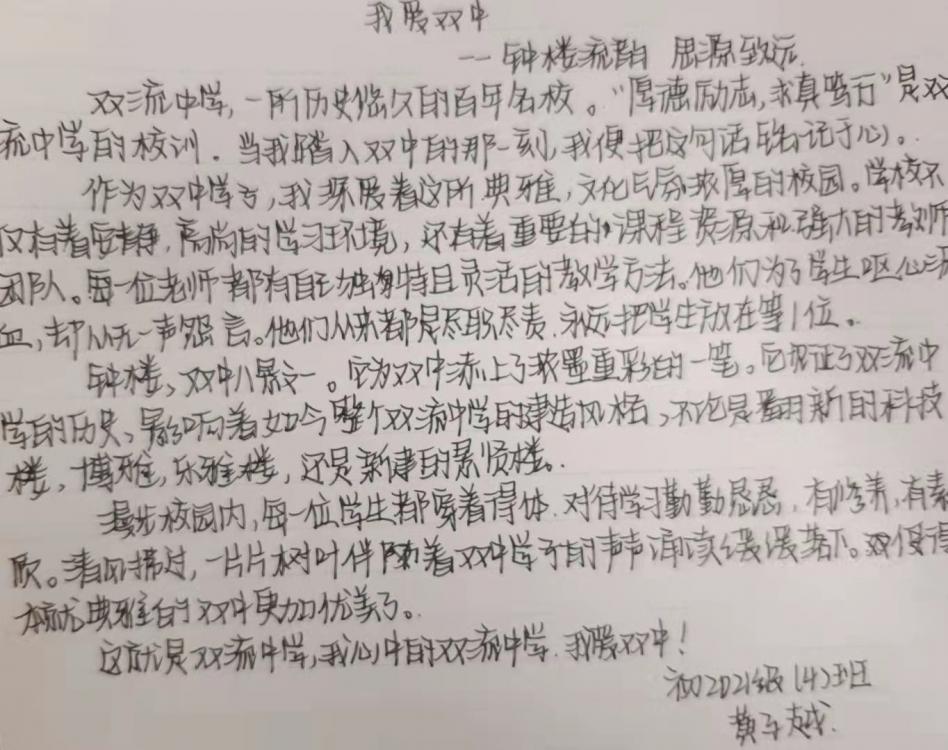 我爱双中
——钟楼流韵 思源致远
双流中学，一所历史悠久的百年名校。“厚德励志，求真笃行”是双
流中学的校训。当我踏入双中的那一刻，我便把这句话铭记于心。
作为双中学子，我深爱着这所典雅，文化气氛浓厚的校园。学校不
仅有着安静，高尚的学习环境，还有着重要的课程资源和强大的教师
团队。每一位老师都有自己独特且灵活的教学方法。他们为了学生呕心沥
血，却从无一声怨言。他们从来都是尽职尽责，永远把学生放在第1位。
钟楼，双中八景之一。它为双中添上了浓墨重彩的一笔。它见证了双流中
学的历史，影响着如今整个双流中学的建造风格，不论是翻新的科技
楼，博雅，乐雅楼，还是新建的景贤楼。
漫步校园内，每一位学生都穿着得体，对待学习勤勤恳恳，有修养，有素
质。清风拂过，一片片树叶伴随着双中学子的声声诵读缓缓落下。便得
本就典雅的双中更加优美了。
这就是双流中学，我心中的双流中学，我爱双中！
初2021级（4）班
黄子越